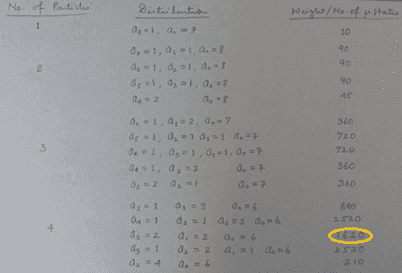 No. of Particles Distribution Weight/No. of μstates
1 a₈ = 1, a₀ = 9 10
a₇ = 1, a₁ = 1, a₀ = 8 90
2 a₆ = 1, a₂ = 1, a₀ = 8 90
a₅ = 1, a₃ = 1, a₀ = 8 90
a₄ = 2 a₀ = 8 45
a₆ = 1, a₁ = 2, a₀ = 7 360
a₅ = 1, a₂ = 1 a₁ = 1 a₀ = 7 720
3 a₄ = 1, a₃ = 1, a₁ = 1, a₀ = 7 720
a₄ = 1, a₂ = 2 a₀ = 7 360
a₃ = 2 a₂ = 1 a₀ = 7 360
a₅ = 1 a₁ = 3 a₀ = 6 840
a₄ = 1 a₂ = 1 a₁ = 2 a₀ = 6 2520
4 a₃ = 2 a₁ = 2 a₀ = 6 1620
a₃ = 1 a₂ = 2 a₁ = 1 a₀ = 6 2520
a₂ = 4 a₀ = 6 210